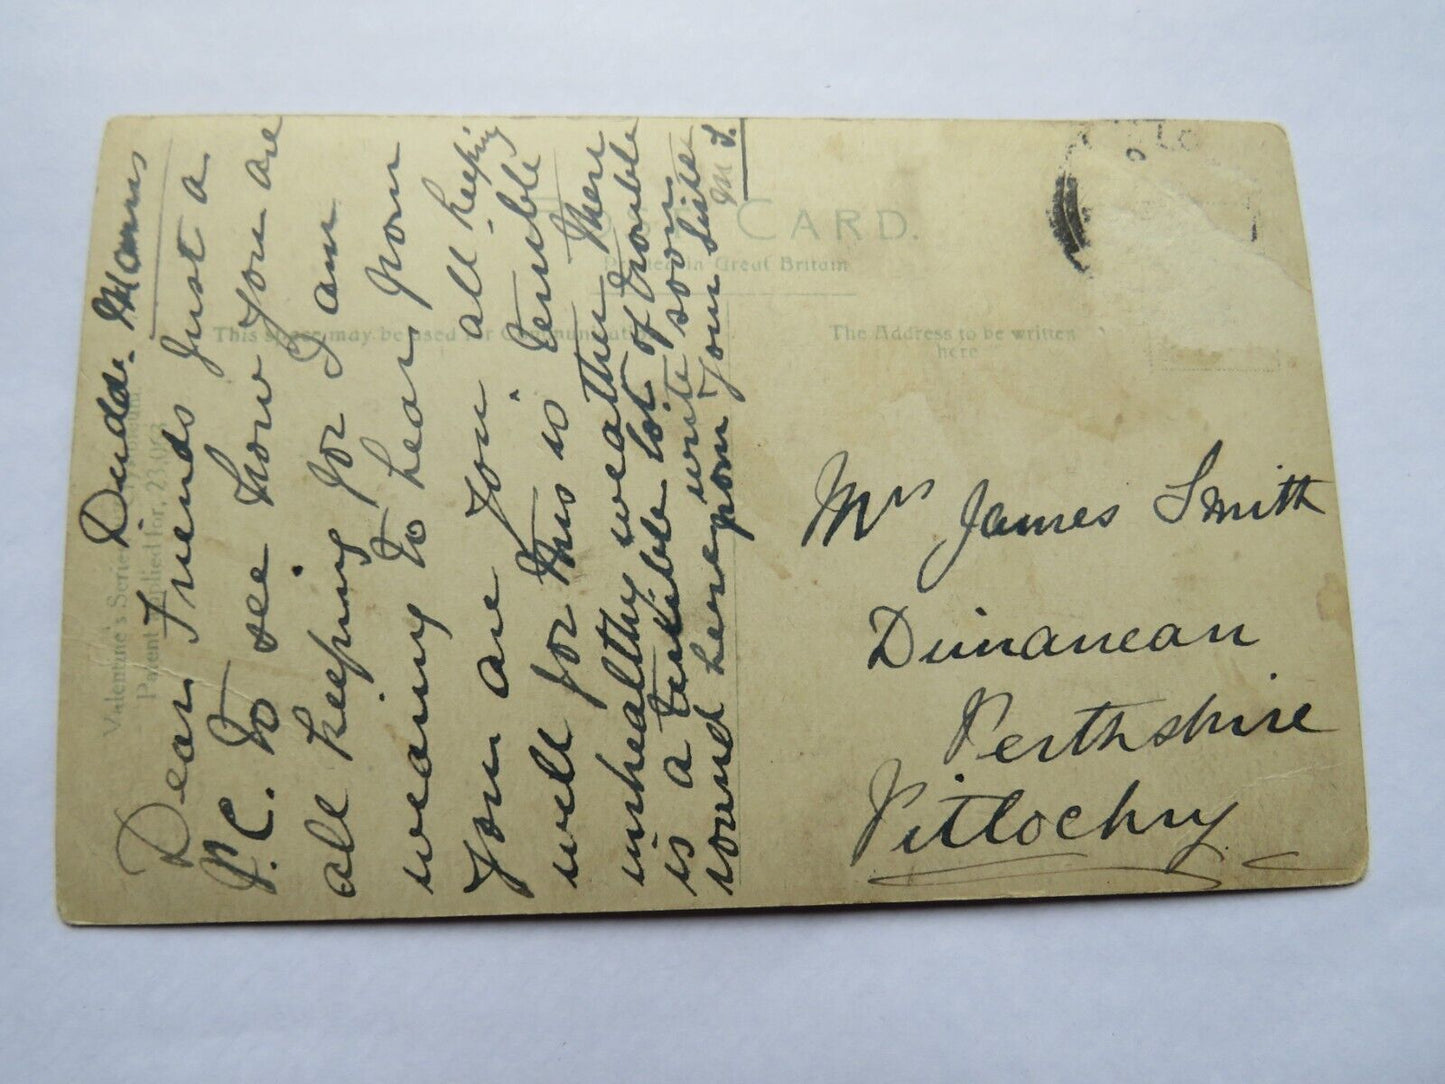 POST CARD.
Printed in Great Britain
This space may be used for Communication
The Address to be written
here
Valentine's Series
Patent applied for, 23,063
Dear Friends Just a
P.C. to see how you are
all keeping for I am
wearing to hear from
you are you all keeping
well for this is terrible
unhealthy weather there
is a terrible lot of trouble
round here write soon
from Your Sister
Mrs James Smith
Dunanean
Perthshire
Pitlochry